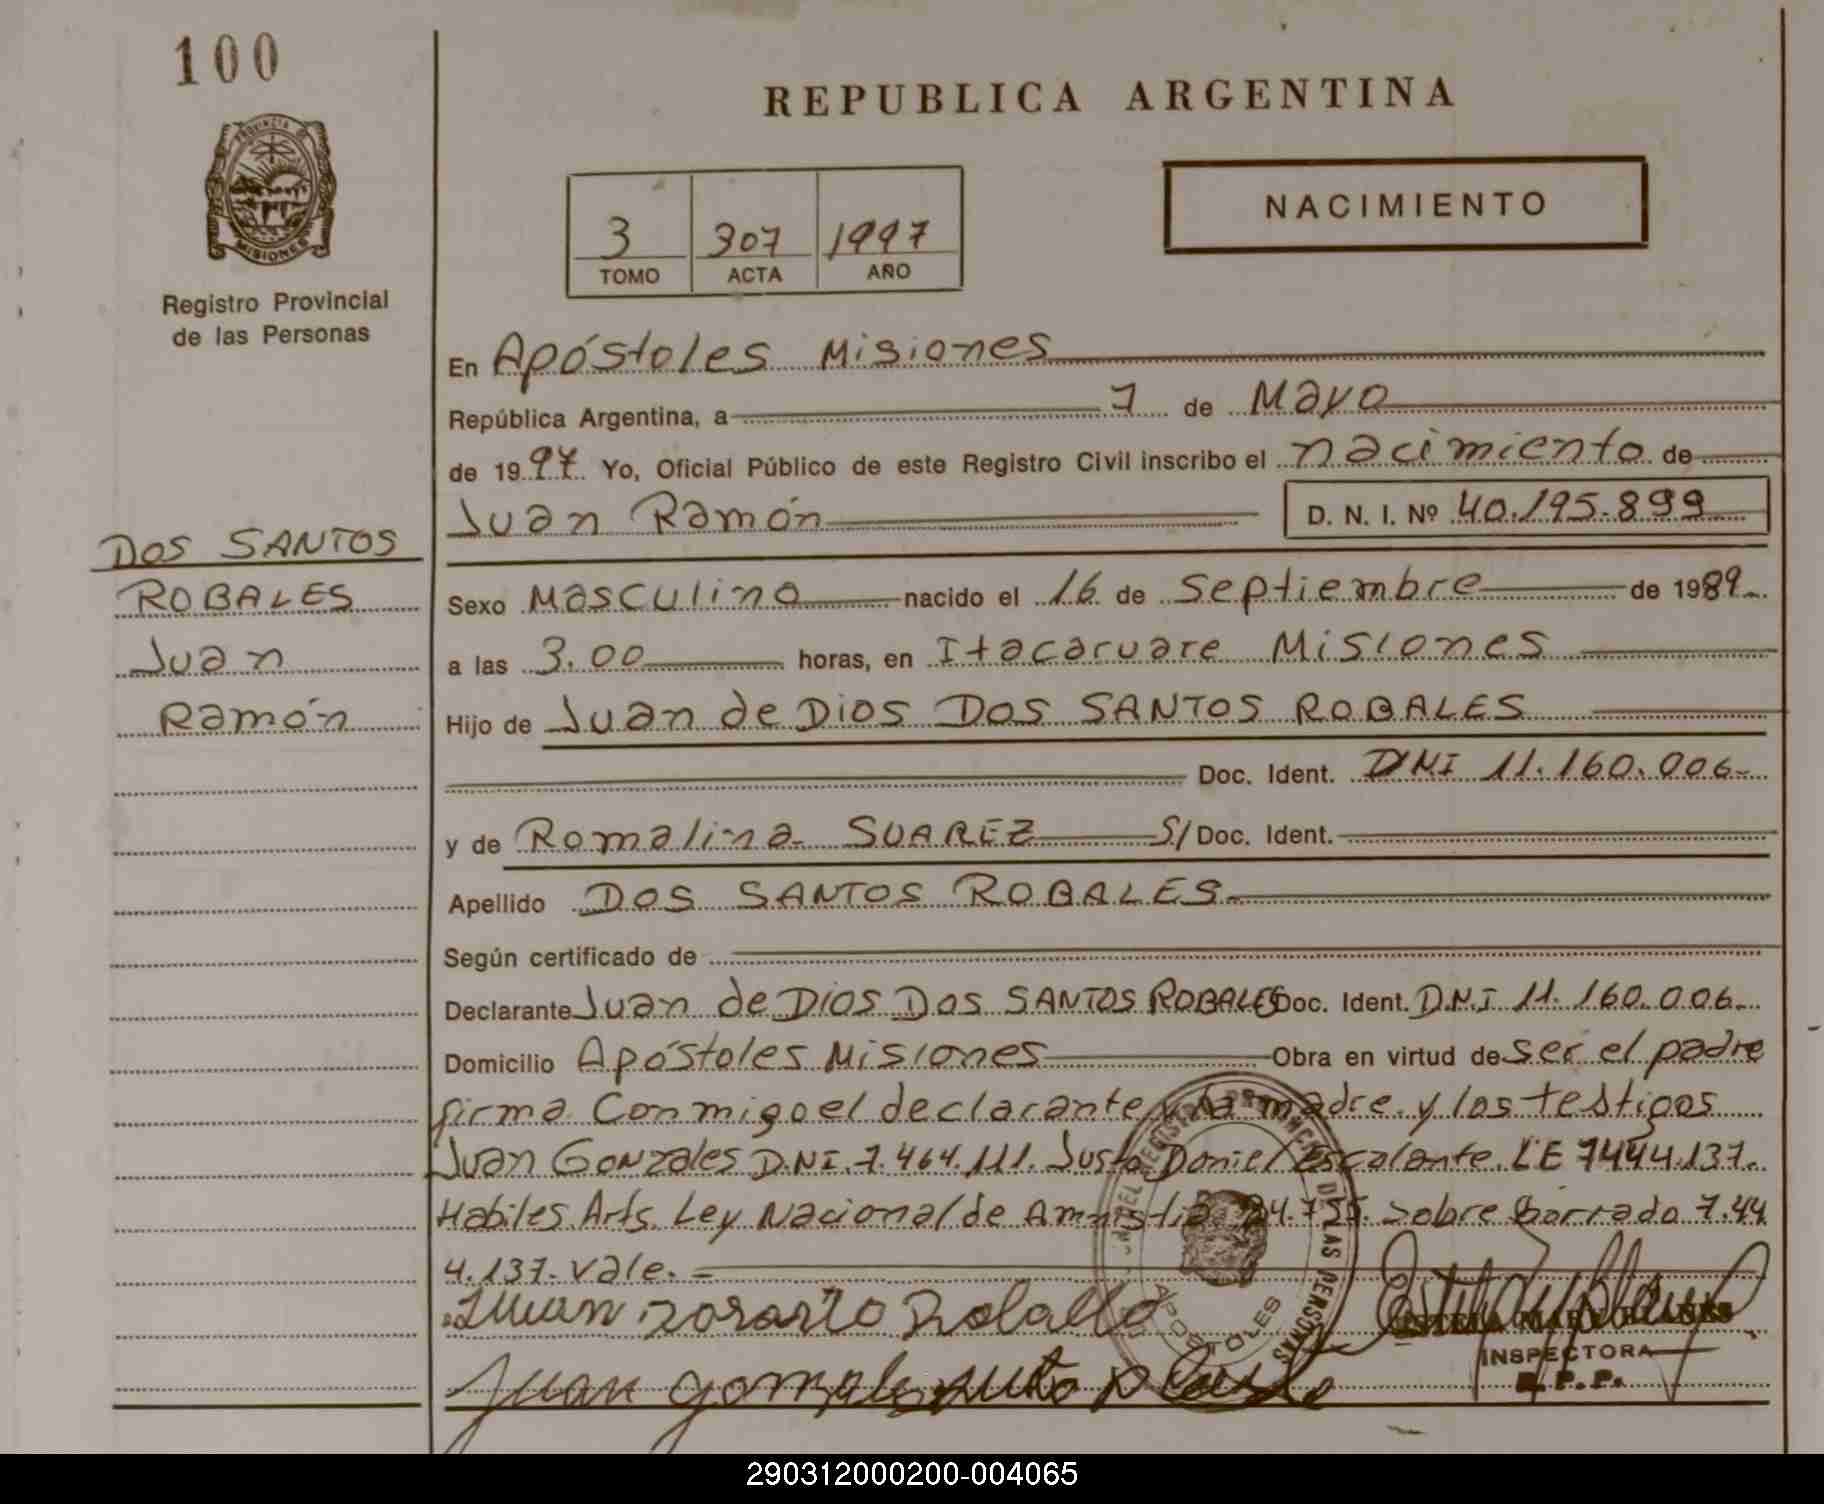 100
REPUBLICA ARGENTINA
PROVINCIA DE
MISIONES
Registro Provincial
de las Personas
3 307 1997
TOMO ACTA AÑO
NACIMIENTO
En Apóstoles Misiones
República Argentina, a 7 de Mayo
de 1997. Yo, Oficial Público de este Registro Civil inscribo el nacimiento de
Juan Ramón D. N. I. Nº 40.195.899
DOS SANTOS
ROBALES
Juan
Ramón
Sexo Masculino nacido el 16 de septiembre de 1989.
a las 3.00 horas, en Itacaruare Misiones
Hijo de Juan de Dios DOS SANTOS ROBALES
Doc. Ident. DNI 11.160.006-
y de Romalina SUAREZ S/ Doc. Ident.
Apellido DOS SANTOS ROBALES.
Según certificado de
Declarante Juan de Dios Dos SANTOS ROBALES Doc. Ident. D.N.I 11.160.006.
Domicilio Apóstoles Misiones Obra en virtud de ser el padre
firma Conmigo el declarante y la madre y los testigos
Juan Gonzales D.N.I. 7.464.111. Justo Daniel Escalante L.E 7444.137.
Habiles Arts. Ley Nacional de Amnistia 24.755. sobre Borrado 7.44
4.137. vale.
Juan
Juan Gonzales Justo
REGISTRO PROVINCIAL DE LAS PERSONAS
APOSTOLES
ESTELA MARY BLANES
INSPECTORA
R.P.P.
290312000200-004065